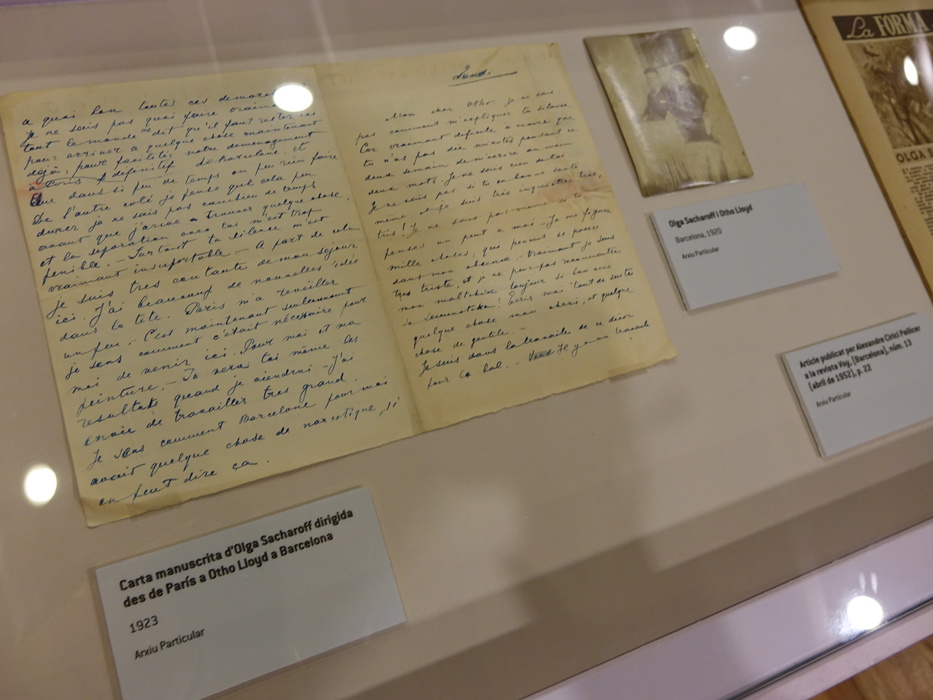 a quoi bon toutes ces demar
Je ne sais pas quoi faire vraim
tout le monde dit qu'il faut rester ici
pour arriver a quelque chose maintenant
déjà, pour faciliter notre demenagement
a Paris definitif de Barcelone et
Que dans si peu de temps on peu rien faire
De l'autre coté je pense que cela peu
durer je ne sais pas combien de temps
avant que j'arive a trouver quelque chose.
et la separation avec toi m'est trop
penible. — Surtout ta silence m'est
vraiment insuportable — A part de cela
je suis tres contante de mon sejour
ici. J'ai beaucoup de nouvelles idée
dans la tête. Paris m'a reveiller
un peu. C'est maintenant seulement
je sens comment c'était nécessaire pour
moi de venir ici. Pour moi et ma
peinture. — Tu veras toi même les
resultats quand je viendrai — J'ai
envie de travailler tres grand.
Je sens comment Barcelone pour moi
avait quelque chose de narcotique, si
on peut dire ça.
Lundi.
Mon cher Otho je ne sais
pas comment m'expliquer ta silence
Car vraiment depuis a moins que
tu n'as pas des minutes pendant ce
deux semain de m'ecrire au moin
deux mots. Je ne sais rien de toi
Je ne sais pas si tu es bonne santé
même, et je suis tres inquiette tres,
tres! Je ne sais pas
penses un peut a moi — Je me figure
mille choses, que peuvent se passer
dans mon absence. Vraiment je suis
tres triste, et je ne peu pas reconnaitre
mon
Ecris moi tout de suite
quelque chose mon cheri, et quelque
chose de gentile. —
Je suis dans la travaille de ce décor
pour ce bal. — Il y a un travaile
Carta manuscrita d'Olga Sacharoff dirigida
des de París a Otho Lloyd a Barcelona
1923
Arxiu Particular
Olga Sacharoff i Otho Lloyd
Barcelona, 1920
Arxiu Particular
La FORMA
OLGA S
Article publicat per Alexandre Cirici Pellicer
a la revista Voy, [Barcelona], núm. 13
(abril de 1952), p. 22
Arxiu Particular